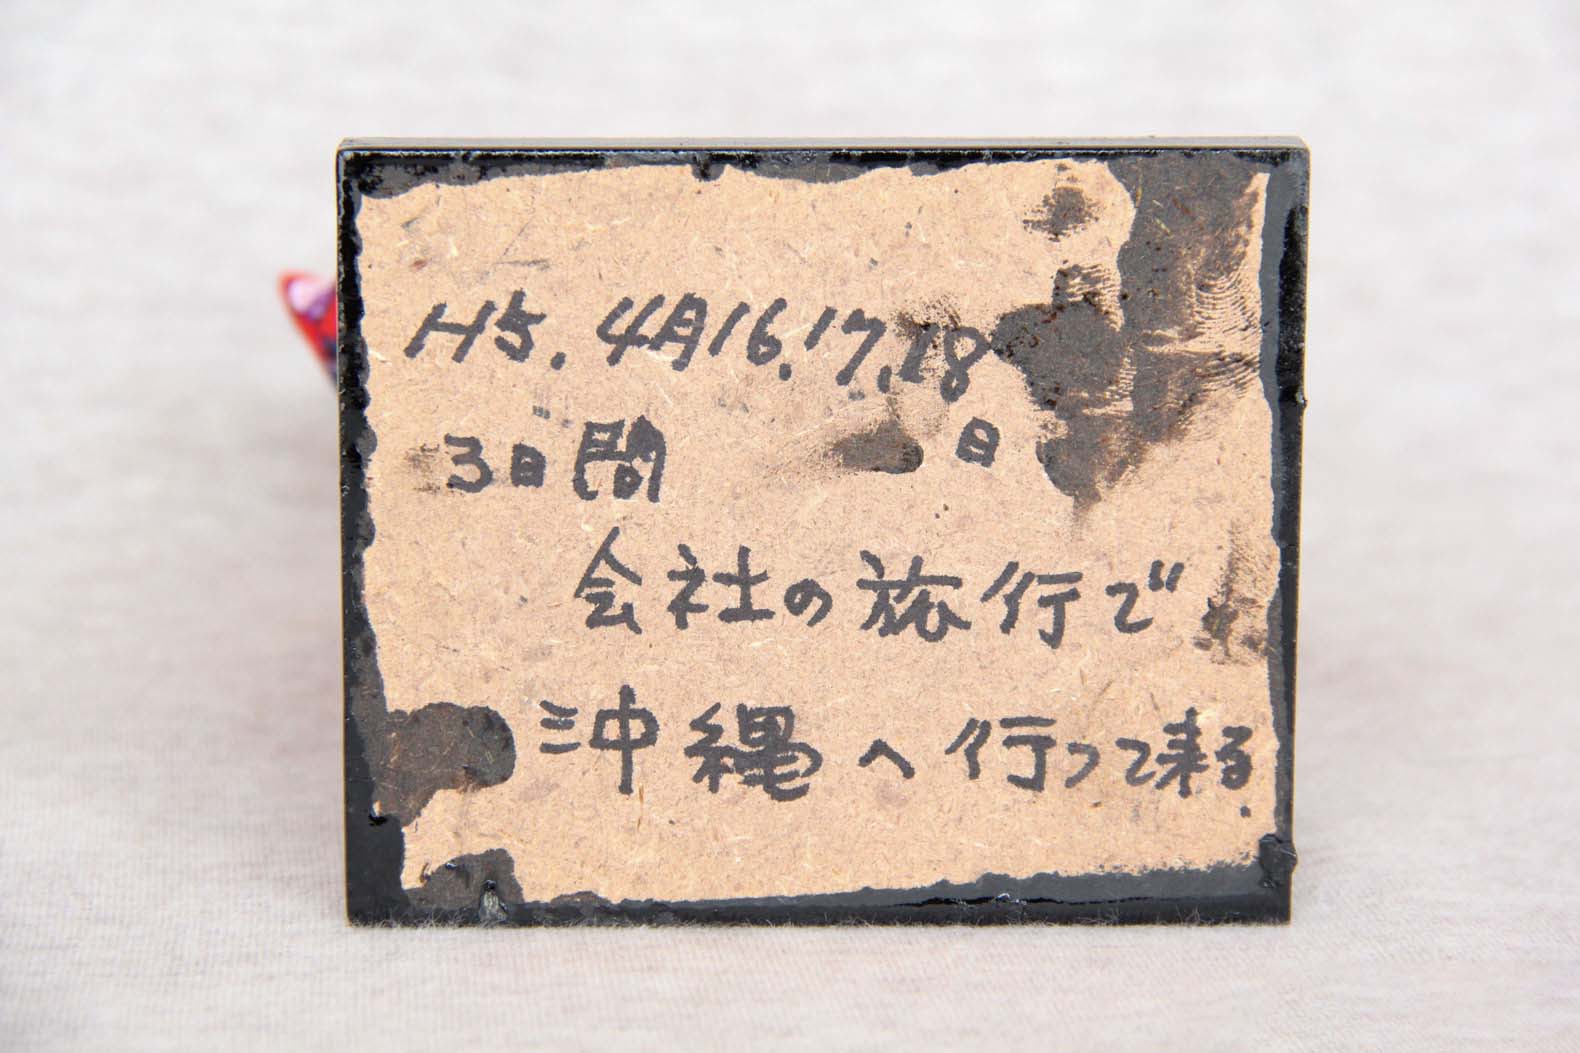 H5. 4月16.17.18
3日間 日
会社の旅行で
沖縄へ行って来る.